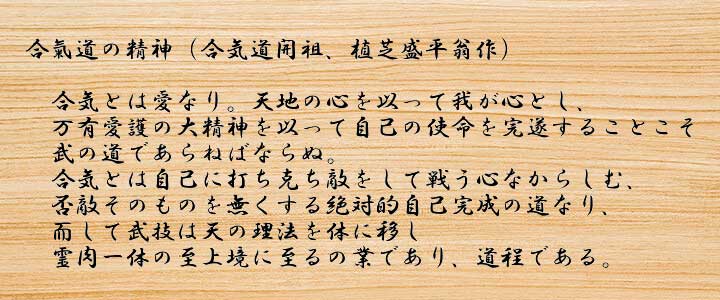 合氣道の精神（合気道開祖、植芝盛平翁作）
合気とは愛なり。天地の心を以って我が心とし、
万有愛護の大精神を以って自己の使命を完遂することこそ
武の道であらねばならぬ。
合気とは自己に打ち克ち敵をして戦う心なからしむ、
否敵そのものを無くする絶対的自己完成の道なり、
而して武技は天の理法を体に移し
霊肉一体の至上境に至るの業であり、道程である。